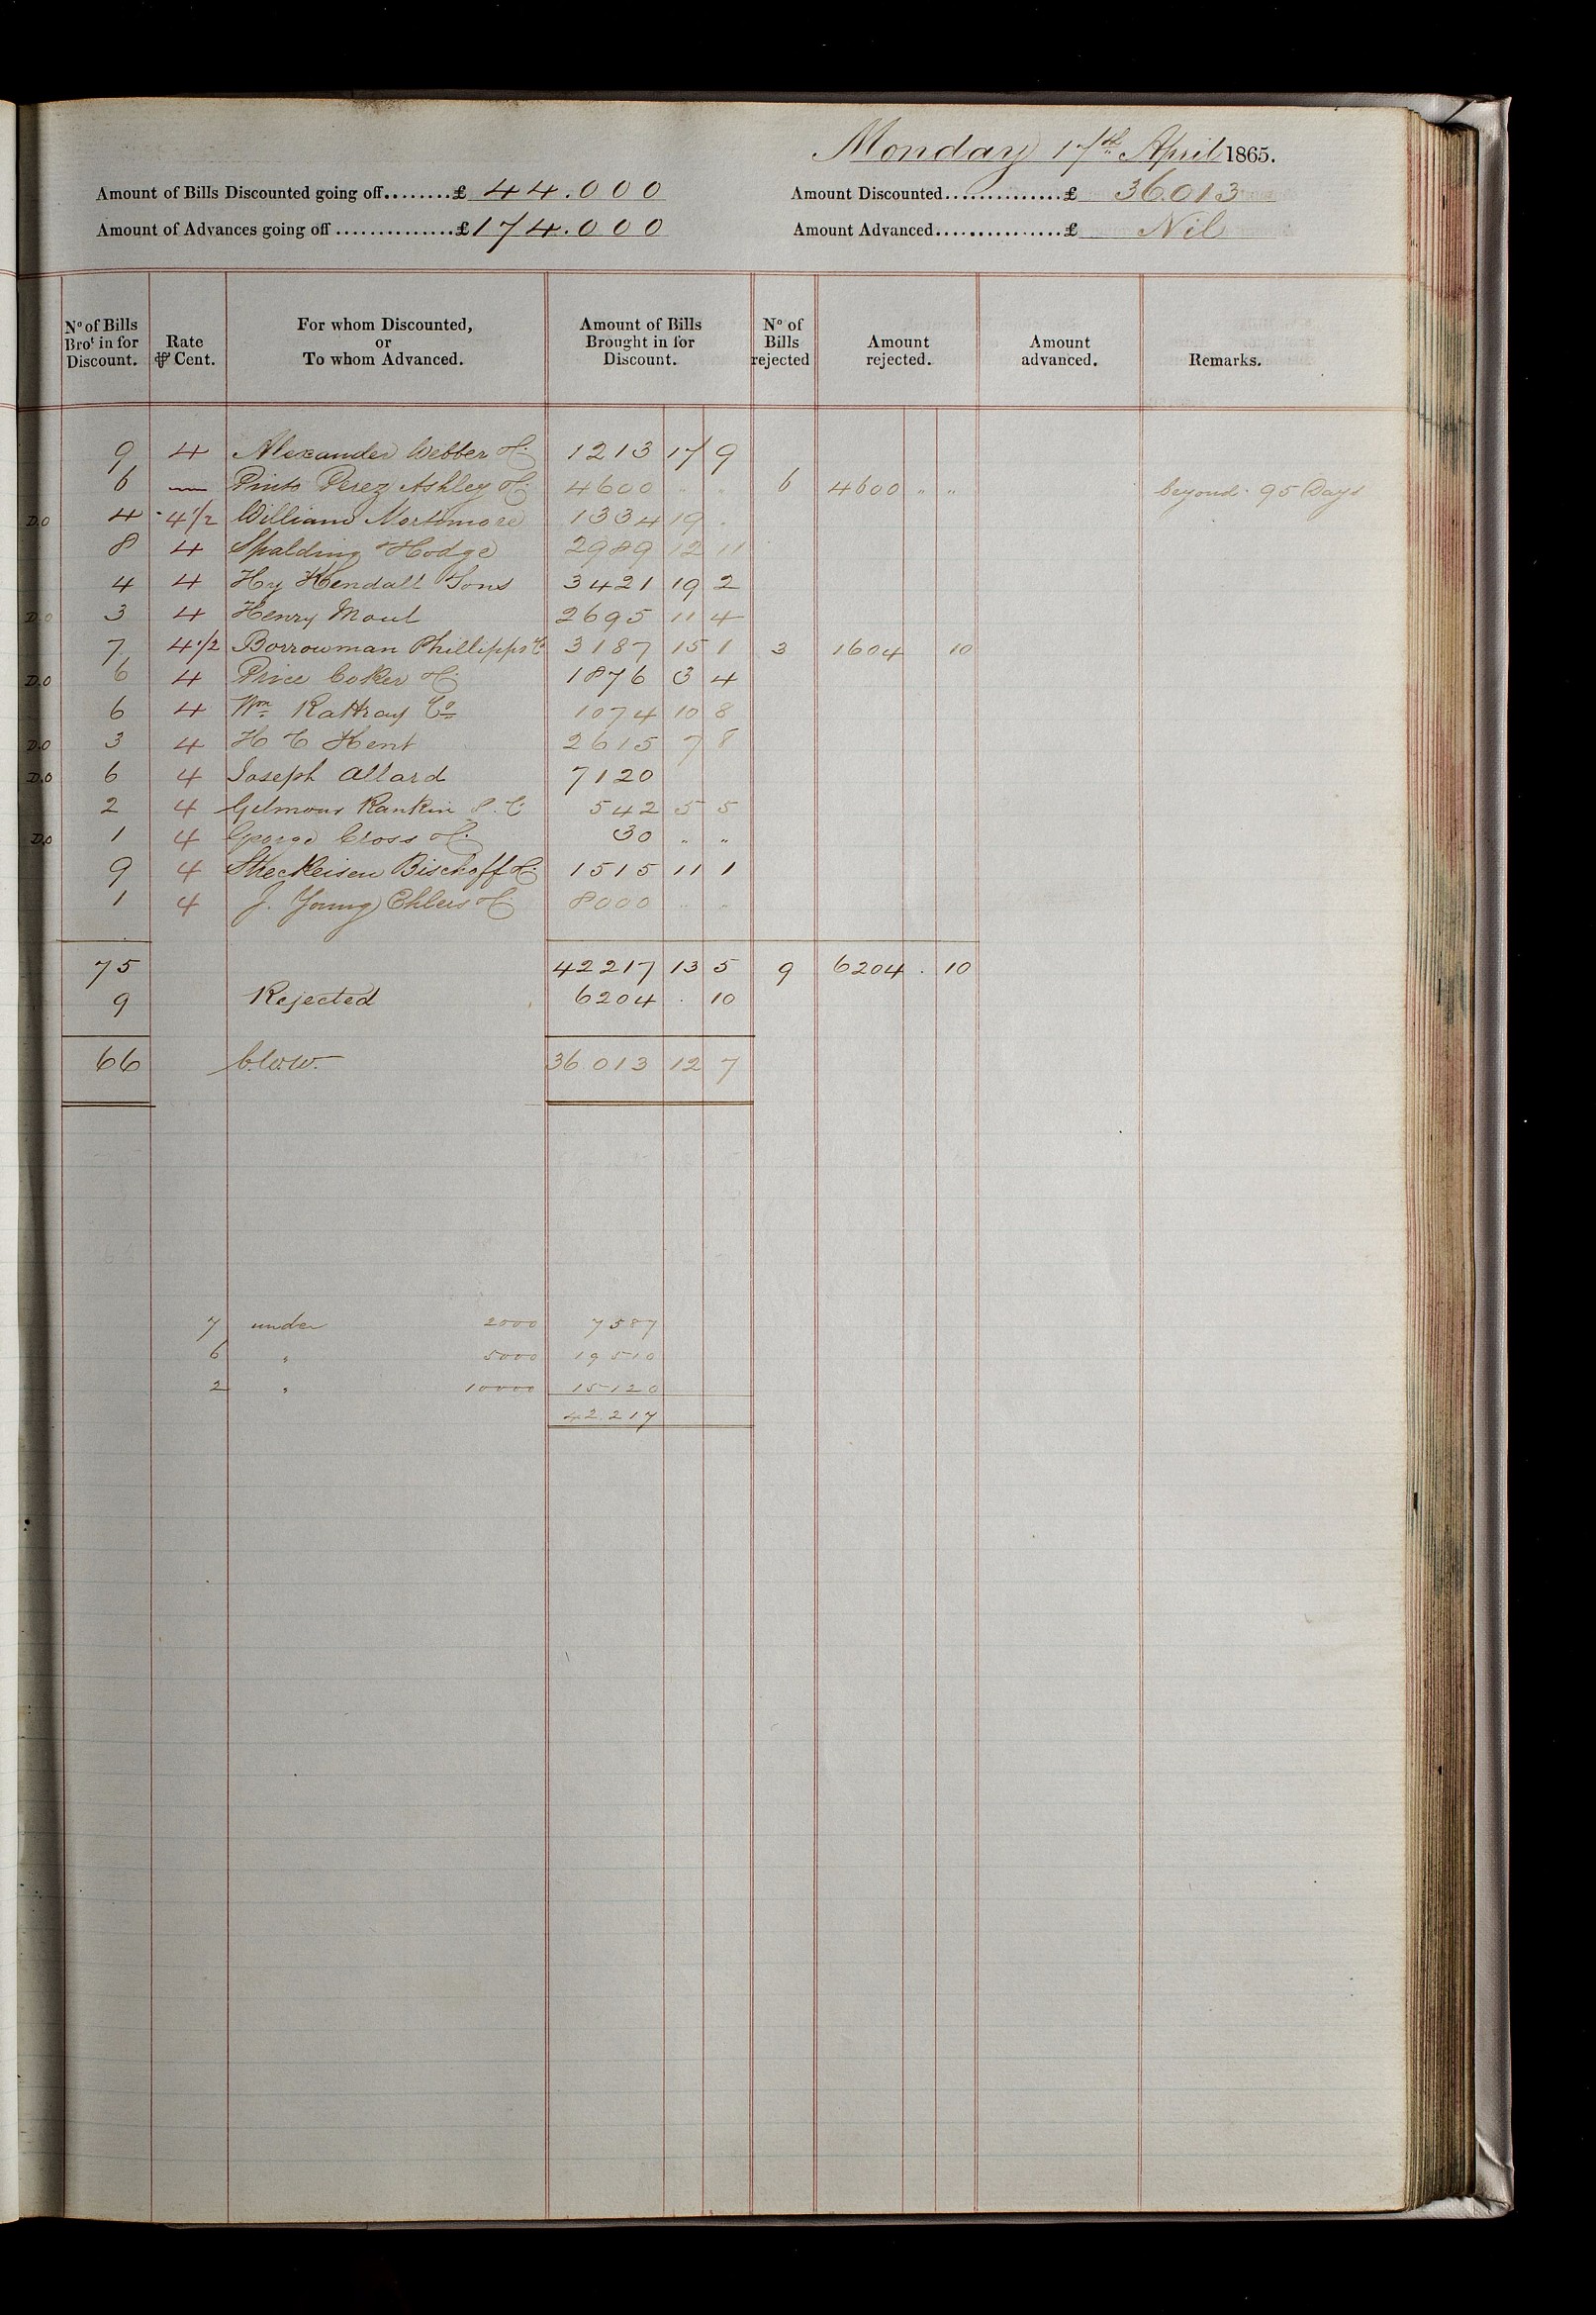 Monday 17th April 1865.
Amount of Bills Discounted going off........£ 44.000 Amount Discounted..............£ 36.013
Amount of Advances going off...............£ 174.000 Amount Advanced................£ Nil
No of Bills Brot in for Discount. Rate ⅌ Cent. For whom Discounted, or To whom Advanced. Amount of Bills Brought in for Discount. No of Bills rejected Amount rejected. Amount advanced. Remarks.
9 4 Alexander Webber & Co 1213 17 9
6 — Pinto Perez Ashley & Co 4600 " " 6 4600 " " beyond 95 Days
D.O 4 4 1/2 William Northmore 1334 19 .
8 4 Spalding & Hodge 2989 12 11
4 4 Hy Kendall Sons 3421 19 2
D.O 3 4 Henry Moul 2695 11 4
7 4 1/2 Borrowman Phillipps & Co 3187 15 1 3 1604 10
D.O 6 4 Price Coker & Co 1876 3 4
6 4 Wm Rattray Co 1074 10 8
D.O 3 4 H C Kent 2615 7 8
D.O 6 4 Joseph Allard 7120
2 4 Gilmour Rankin S. & Co 542 5 5
D.O 1 4 George Cross & Co 30 " "
9 4 Streckeisen Bischoff & Co 1515 11 1
1 4 J. Young Ehlers & Co 8000 " "
75 42217 13 5 9 6204 . 10
9 Rejected 6204 . 10
66 36.013 12 7
7 under 2000 7587
6 " 5000 19510
2 " 10000 15120
42.217